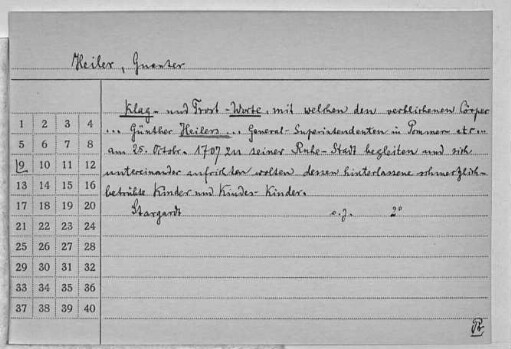 Heiler, Guenter
Klag- und Trost-Worte, mit welchen den verblichenen Cörper
... Günther Heilers ... General-Superintendenten in Pommern etc...
am 25. Octobr. 1707 zu seiner Ruhe-Stadt begleiten und sich
untereinander aufrichten wolten dessen hinterlassene schmerzlich-
betrübte Kinder und Kindes-Kinder.
Stargardt o.J. 2°
1 2 3 4
5 6 7 8
9 10 11 12
13 14 15 16
17 18 19 20
21 22 23 24
25 26 27 28
29 30 31 32
33 34 35 36
37 38 39 40